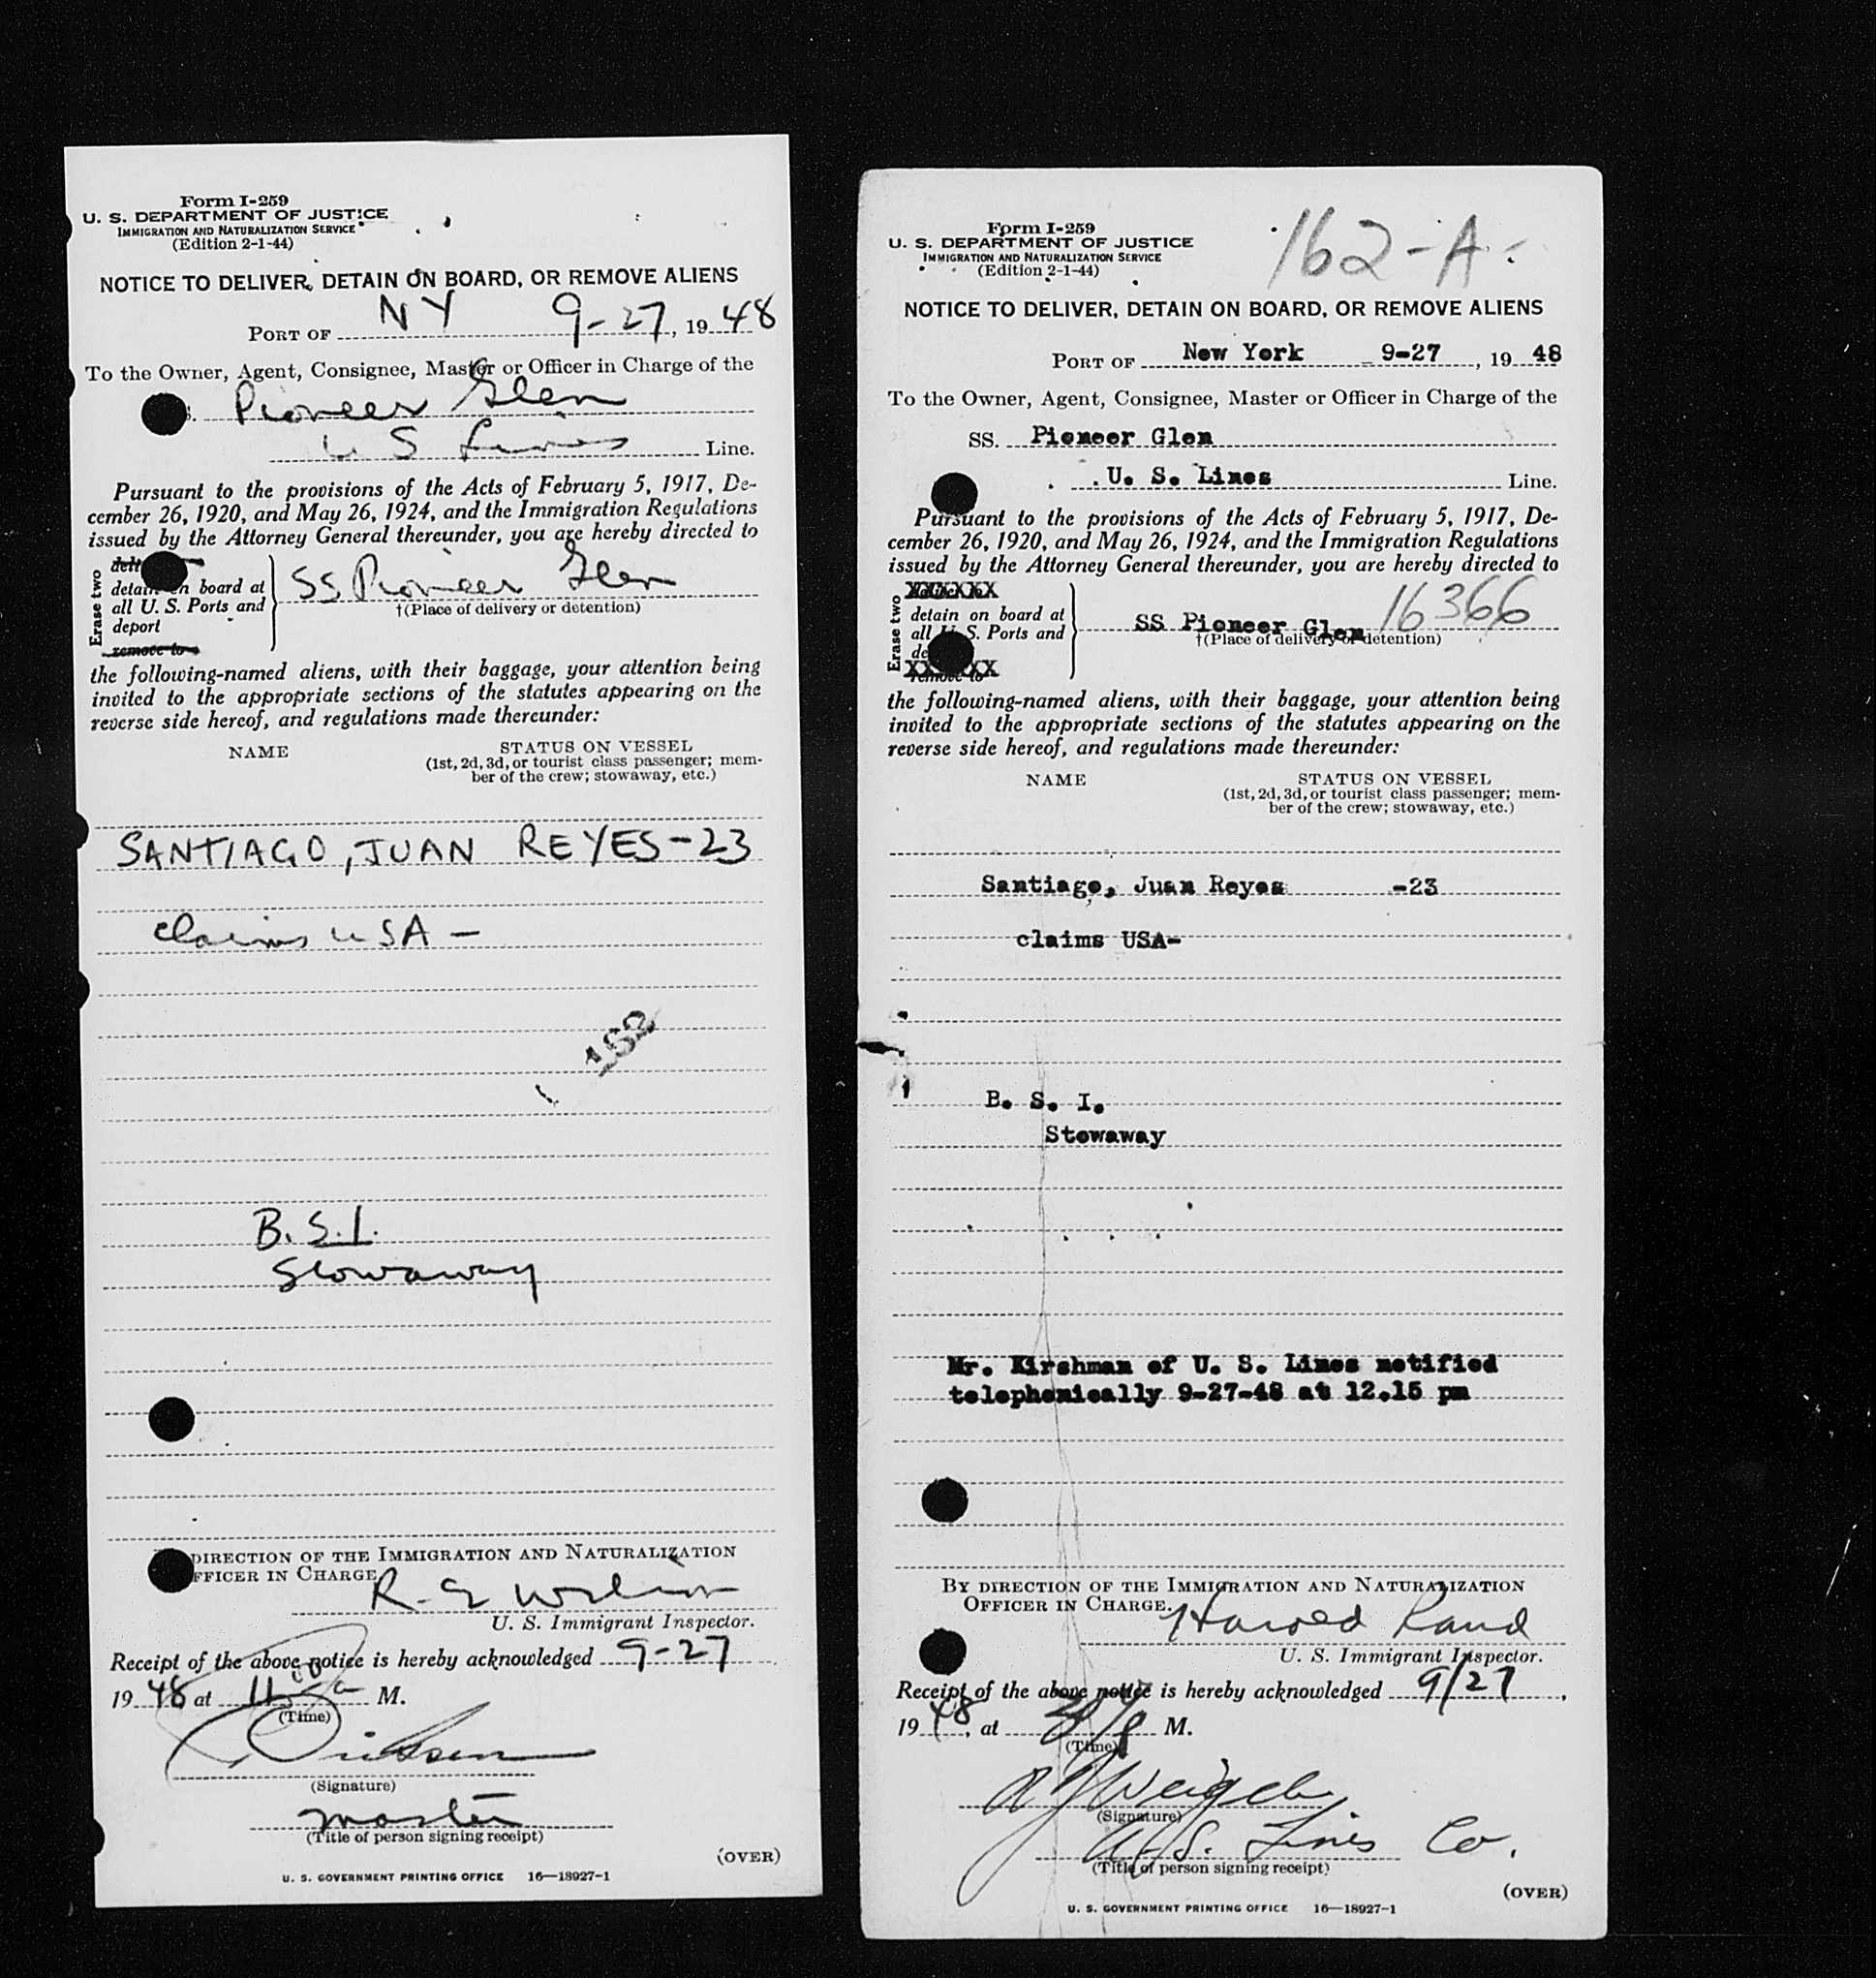 Form I-259
U. S. DEPARTMENT OF JUSTICE
IMMIGRATION AND NATURALIZATION SERVICE
(Edition 2-1-44)
NOTICE TO DELIVER, DETAIN ON BOARD, OR REMOVE ALIENS
PORT OF NY 9-27, 19 48
To the Owner, Agent, Consignee, Master or Officer in Charge of the
Pioneer Glen
U S Lines Line.
Pursuant to the provisions of the Acts of February 5, 1917, De-
cember 26, 1920, and May 26, 1924, and the Immigration Regulations
issued by the Attorney General thereunder, you are hereby directed to
Erase two
detain on board at
all U. S. Ports and
deport
remove to
SS Pioneer Glen
†(Place of delivery or detention)
the following-named aliens, with their baggage, your attention being
invited to the appropriate sections of the statutes appearing on the
reverse side hereof, and regulations made thereunder:
NAME STATUS ON VESSEL
(1st, 2d, 3d, or tourist class passenger; mem-
ber of the crew; stowaway, etc.)
SANTIAGO, JUAN REYES-23
claims USA -
162
B.S.I.
Stowaway
DIRECTION OF THE IMMIGRATION AND NATURALIZATION
FFICER IN CHARGE
R. E
U. S. Immigrant Inspector.
Receipt of the above notice is hereby acknowledged 9-27
19 48 at 11 00 a M.
(Time)
(Signature)
master
(Title of person signing receipt)
(OVER)
U. S. GOVERNMENT PRINTING OFFICE 16—18927-1
Form I-259
U. S. DEPARTMENT OF JUSTICE
IMMIGRATION AND NATURALIZATION SERVICE
(Edition 2-1-44)
162-A
NOTICE TO DELIVER, DETAIN ON BOARD, OR REMOVE ALIENS
PORT OF New York 9-27, 19 48
To the Owner, Agent, Consignee, Master or Officer in Charge of the
SS. Pioneer Glen
U. S. Lines Line.
Pursuant to the provisions of the Acts of February 5, 1917, De-
cember 26, 1920, and May 26, 1924, and the Immigration Regulations
issued by the Attorney General thereunder, you are hereby directed to
Erase two
detain on board at
all U. S. Ports and
remove to
SS Pioneer Glen 16366
†(Place of delivery or detention)
the following-named aliens, with their baggage, your attention being
invited to the appropriate sections of the statutes appearing on the
reverse side hereof, and regulations made thereunder:
NAME STATUS ON VESSEL
(1st, 2d, 3d, or tourist class passenger; mem-
ber of the crew; stowaway, etc.)
Santiago, Juan Reyes -23
claims USA-
B. S. I.
Stowaway
Mr. Kirshman of U. S. Lines notified
telephonically 9-27-48 at 12.15 pm
BY DIRECTION OF THE IMMIGRATION AND NATURALIZATION
OFFICER IN CHARGE.
Harold Rand
U. S. Immigrant Inspector.
Receipt of the above notice is hereby acknowledged 9/27,
19 48, at M.
(Time)
(Signature)
U.S. Lines Co.
(Title of person signing receipt)
(OVER)
U. S. GOVERNMENT PRINTING OFFICE 16—18927-1